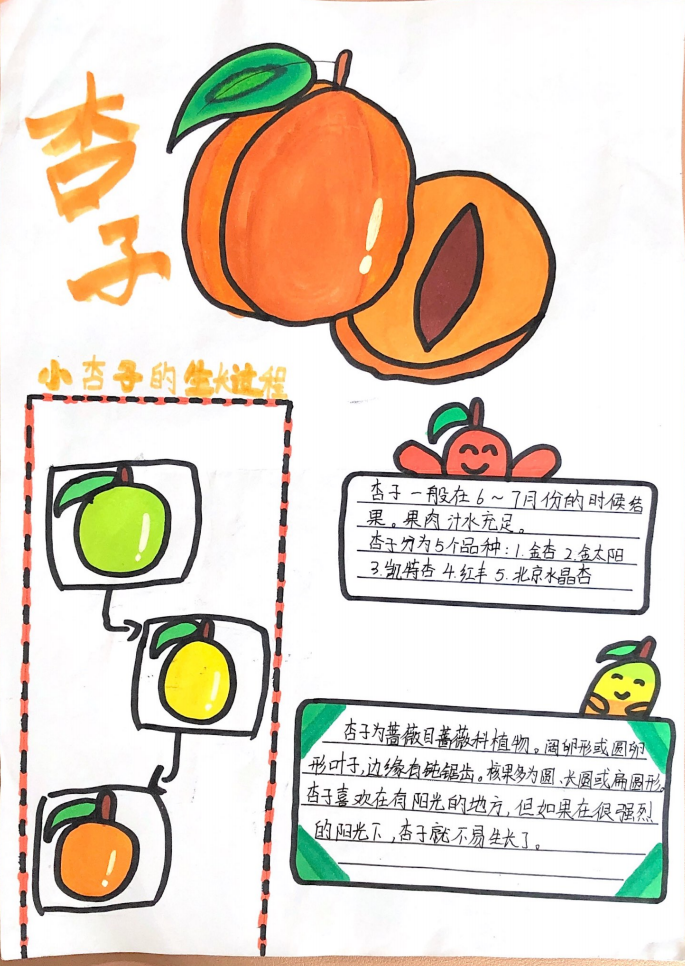 杏子
小杏子的生长过程
杏子一般在6～7月份的时候结
果。果肉汁水充足。
杏子分为5个品种：1.金杏 2.金太阳
3.凯特杏 4.红丰 5.北京水晶杏
杏子为蔷薇目蔷薇科植物。阔卵形或圆卵
形叶子，边缘有钝锯齿。核果多为圆、长圆或扁圆形。
杏子喜欢在有阳光的地方，但如果在很强烈
的阳光下，杏子就不易生长了。